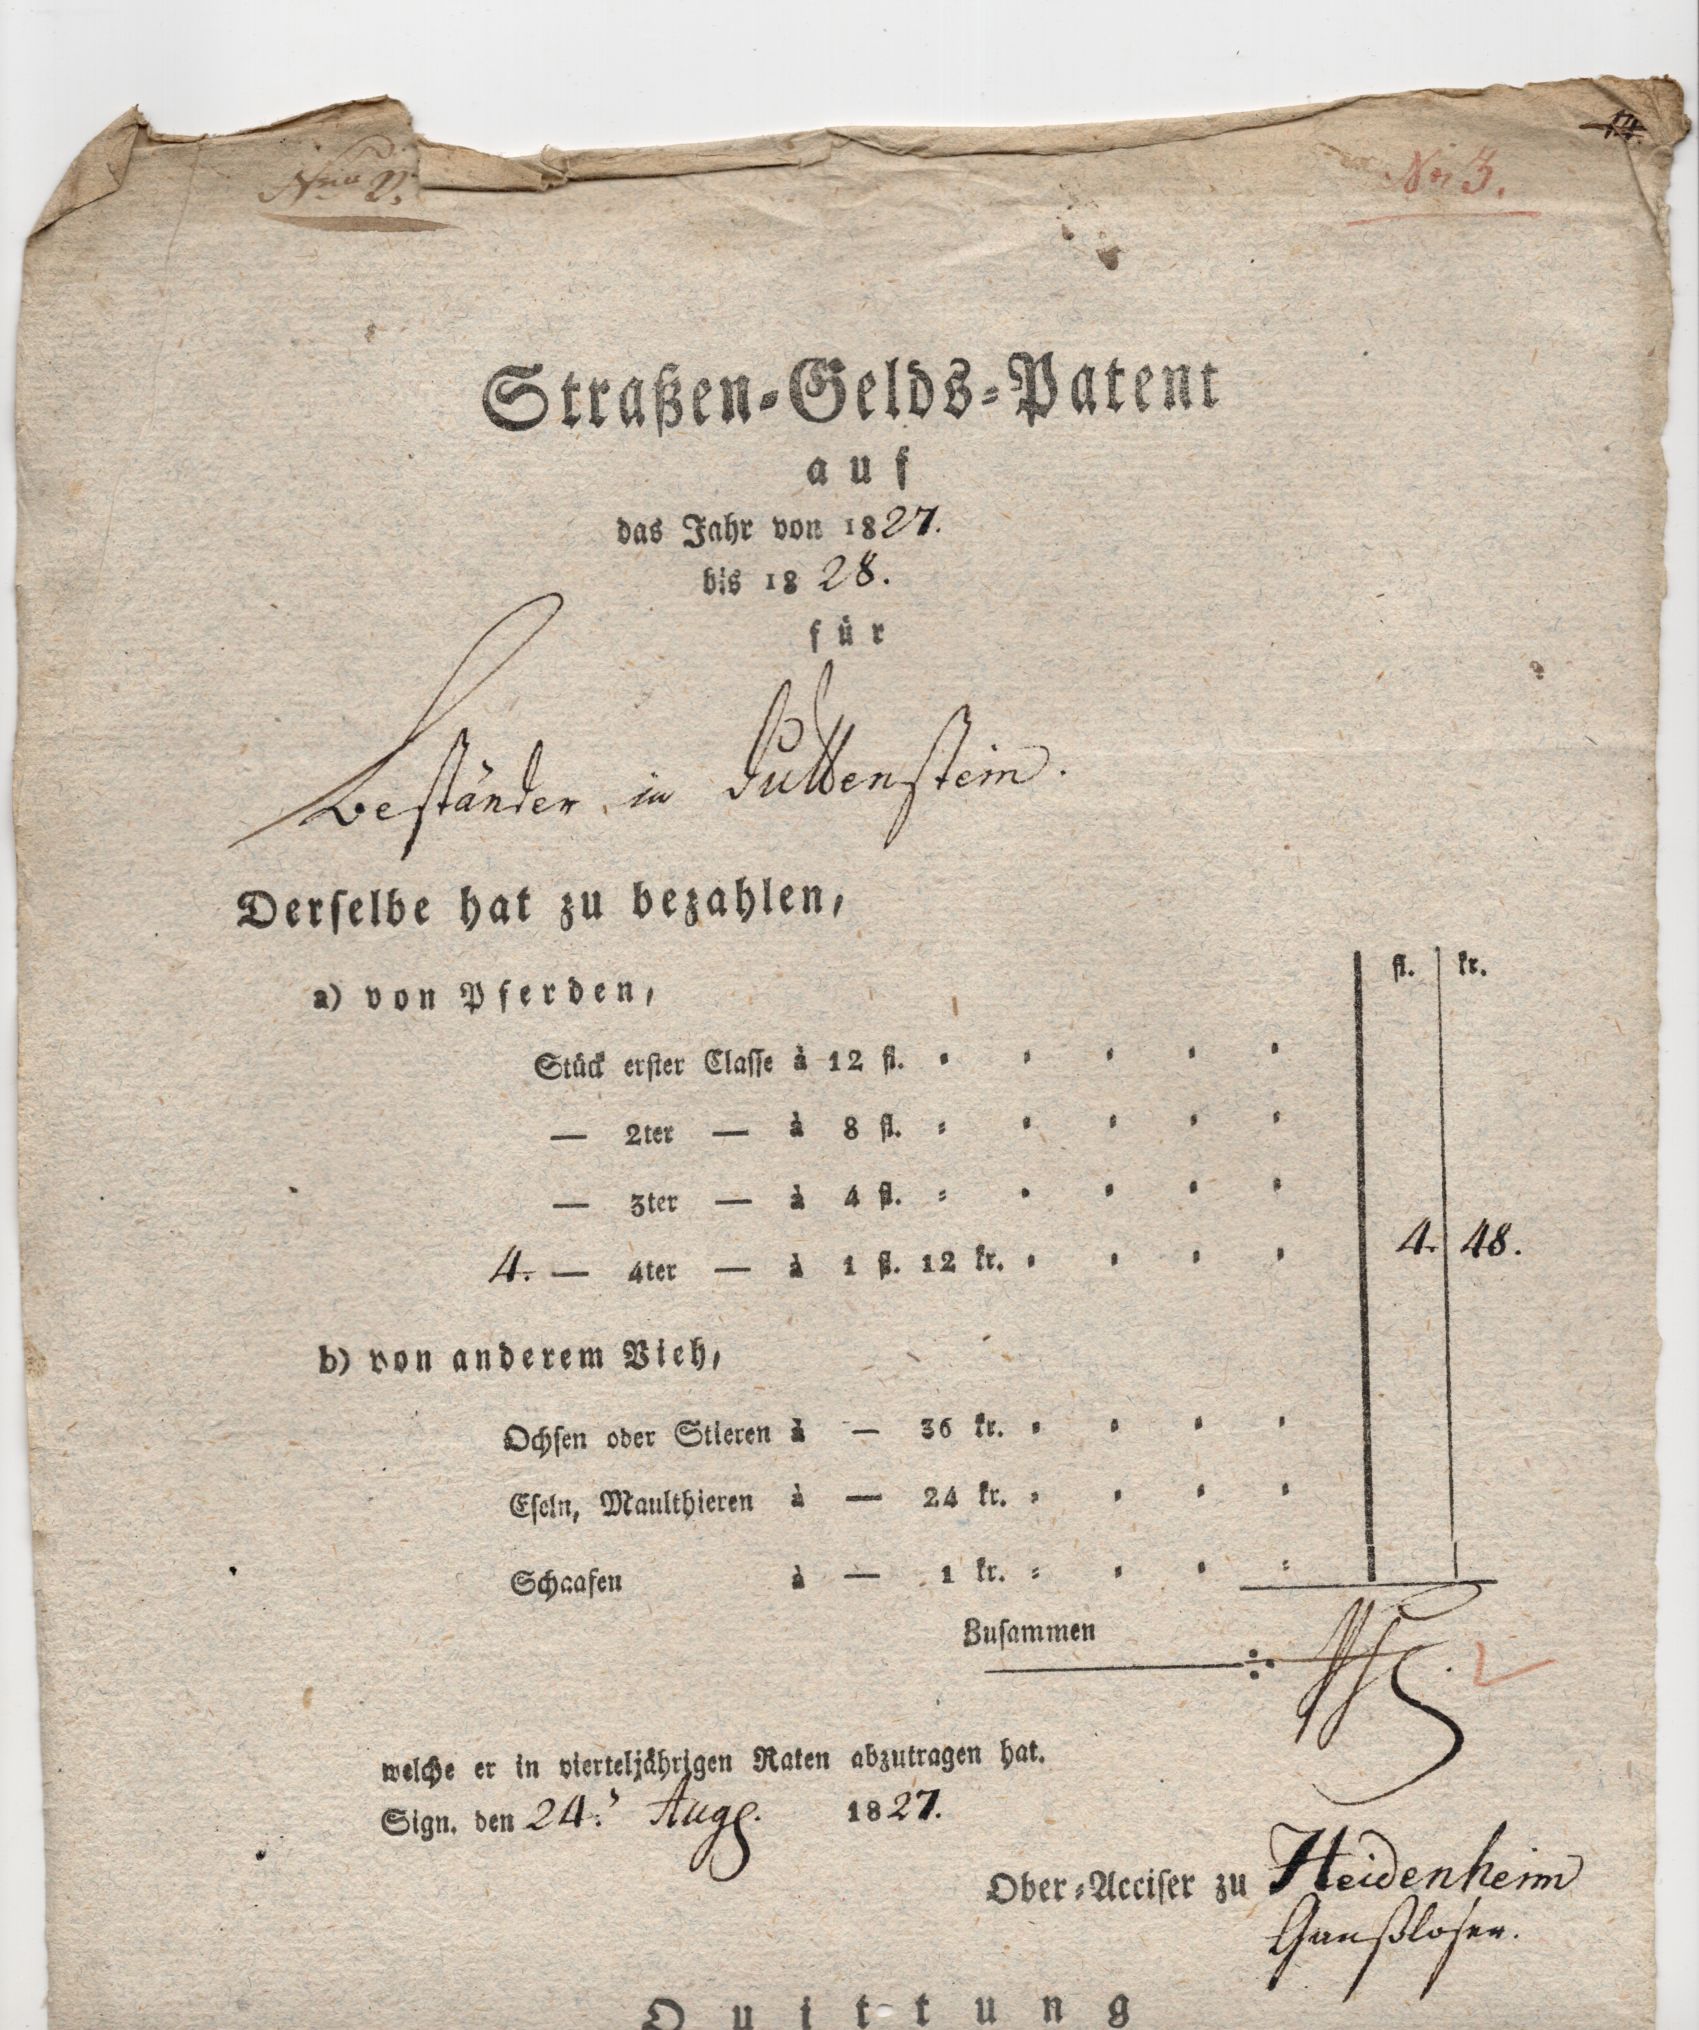 No 3.
Straßen-Gelds-Patent
auf
das Jahr von 1827.
bis 1828.
für
Beständer in
Derselbe hat zu bezahlen,
a) von Pferden,
fl. kr.
Stück erster Classe à 12 fl.
— 2ter — à 8 fl.
— 3ter — à 4 fl.
4. — 4ter — à 1 fl. 12 kr. 4. 48.
b) von anderem Vieh,
Ochsen oder Stieren à — 36 kr.
Eseln, Maulthieren à — 24 kr.
Schaafen à — 1 kr.
Zusammen
welche er in vierteljährigen Raten abzutragen hat.
Sign. den 24. Aug. 1827.
Ober-Acciser zu Heidenheim
Gaußloser.
Quittung